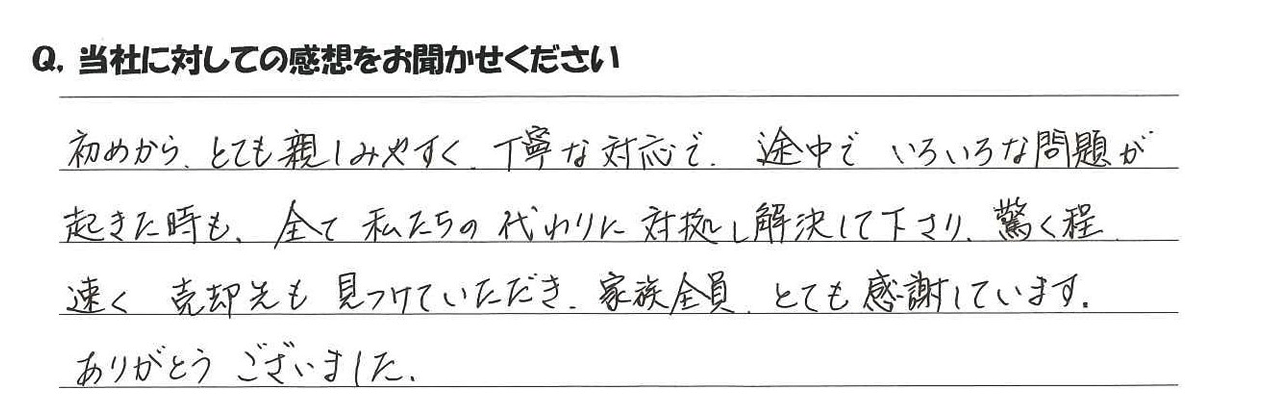 Q. 当社に対しての感想をお聞かせください
初めから、とても親しみやすく、丁寧な対応で、途中でいろいろな問題が
起きた時も、全て私たちの代わりに対拠し解決して下さり、驚く程、
速く売却先も見つけていただき、家族全員、とても感謝しています。
ありがとうございました。